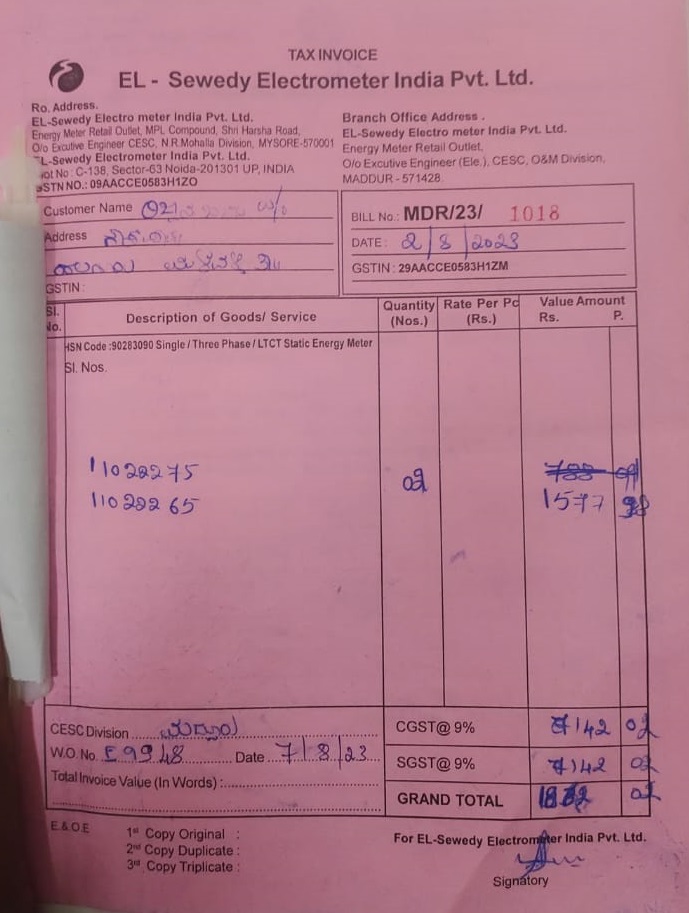 TAX INVOICE
EL - Sewedy Electrometer India Pvt. Ltd.
Ro. Address.
EL-Sewedy Electro meter India Pvt. Ltd.
Energy Meter Retail Outlet, MPL Compound, Shri Harsha Road,
O/o Excutive Engineer CESC, N.R.Mohalla Division, MYSORE-570001
EL-Sewedy Electrometer India Pvt. Ltd.
No : C-138, Sector-63 Noida-201301 UP, INDIA
GSTN NO.: 09AACCE0583H1ZO
Branch Office Address .
EL-Sewedy Electro meter India Pvt. Ltd.
Energy Meter Retail Outlet,
O/o Excutive Engineer (Ele.), CESC, O&M Division,
MADDUR - 571428.
Customer Name
Address
GSTIN :
BILL No.: MDR/23/ 1018
DATE : 2/8/2023
GSTIN : 29AACCE0583H1ZM
Sl. No. Description of Goods/ Service Quantity (Nos.) Rate Per Pc (Rs.) Value Amount Rs. P.
HSN Code :90283090 Single / Three Phase / LTCT Static Energy Meter
Sl. Nos.
11022275 02
11022265 1577 98
CESC Division
W.O. No. 59948 Date 7/8/23
Total Invoice Value (In Words) :
CGST@ 9% 142 02
SGST@ 9% 142 02
GRAND TOTAL
E & O.E
1st Copy Original :
2nd Copy Duplicate :
3rd Copy Triplicate :
For EL-Sewedy Electrometer India Pvt. Ltd.
Signatory